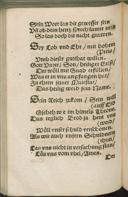 Sein Wort las dir gewisser sein
Und ob dein hertz sprech lauter nein
So las doch dir nicht grawen.
Sey Lob und Ehr / mit hohem
Preis /
Umb dieser gutthat willen
Gott Vater / Son / heiligem Geist /
Der wöll mit Gnad erfüllen /
Was er in uns angfangen hat /
Zu ehren seiner
Das heilig werd sein Name.
Sein Reich zukom / Sein will
auff Erd
Gescheh wie im himels Throne
Das teglich Brod ja heut uns
werd
Wöll unser schuld verschonen
Als wir auch unsern Schüldigern
thun
Las uns nicht in versuchung stan /
Lös uns vom ubel / Amen.